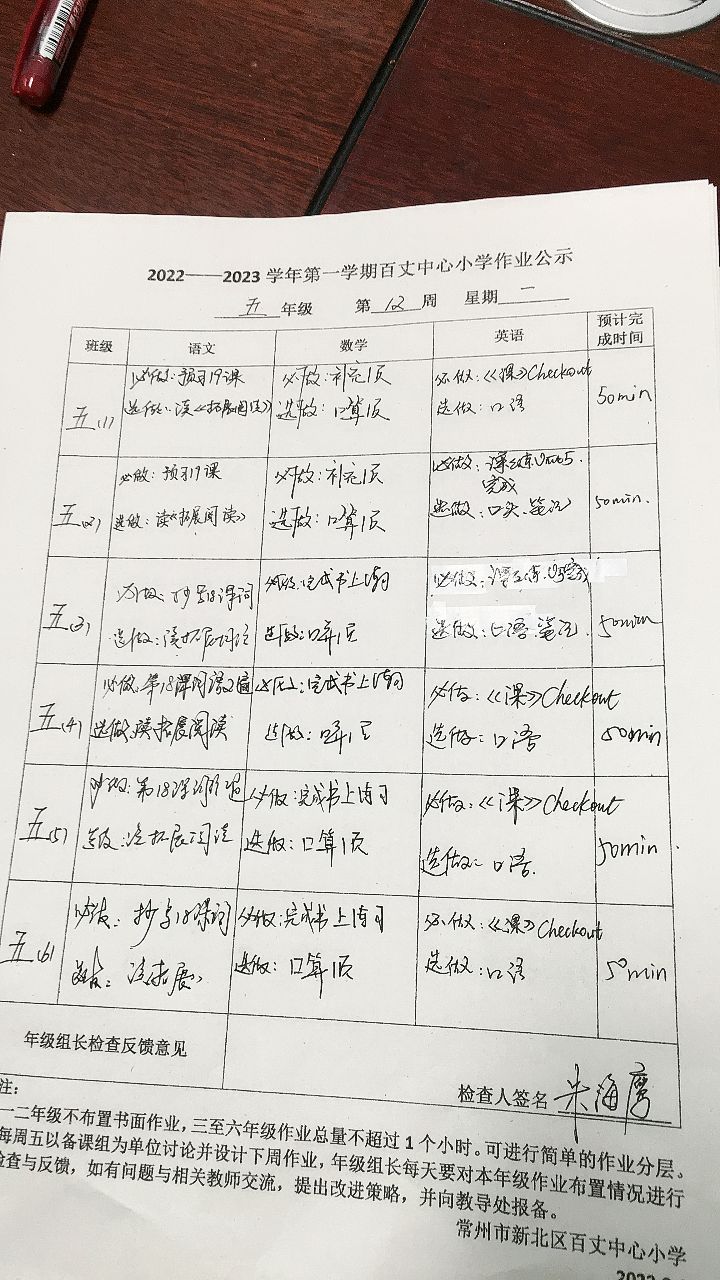 2022——2023 学年第一学期百丈中心小学作业公示
五 年级 第 12 周 星期 二
班级 语文 数学 英语 预计完成时间
五(1)
必做:预习19课
选做:读《拓展阅读》
必做:补充1页
选做:口算1页
必做:《课》Checkout
选做:口语
50min
五(2)
必做:预习19课
选做:读《拓展阅读》
必做:补充1页
选做:口算1页
必做:课课练Unit5.
完成
选做:口头.笔记
50min.
五(3)
必做:抄写18课词
选做:读拓展阅读
必做:完成书上练习
选做:口算1页
必做:课课练.U5完成
选做:口语.笔记
50min
五(4)
必做:第18课词语2遍
选做:读拓展阅读
必做:完成书上练习
选做:口算1页
必做:《课》Checkout
选做:口语
50min
五(5)
必做:第18课词语
选做:读拓展阅读
必做:完成书上练习
选做:口算1页
必做:《课》Checkout
选做:口语.
50min.
五(6)
必做:抄写18课词
选做:读拓展
必做:完成书上练习
选做:口算1页
必做:《课》Checkout
选做:口语
50min
年级组长检查反馈意见
检查人签名 朱海
注:
一二年级不布置书面作业,三至六年级作业总量不超过1个小时。可进行简单的作业分层。
每周五以备课组为单位讨论并设计下周作业,年级组长每天要对本年级作业布置情况进行
检查与反馈,如有问题与相关教师交流,提出改进策略,并向教导处报备。
常州市新北区百丈中心小学